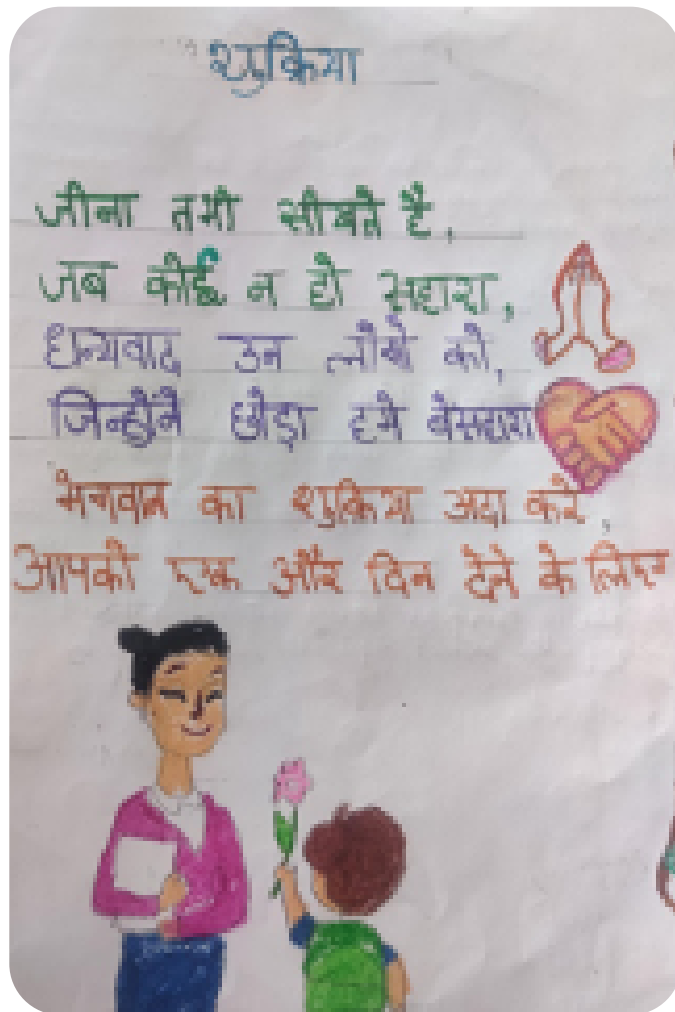 शुक्रिया
जीना तभी सीखते है,
जब कोई न हो सहारा,
धन्यवाद उन लोगो को,
जिन्होंने छोड़ा हमे बेसहारा
भगवान का शुक्रिया अदा करे,
आपको एक और दिन देने के लिए